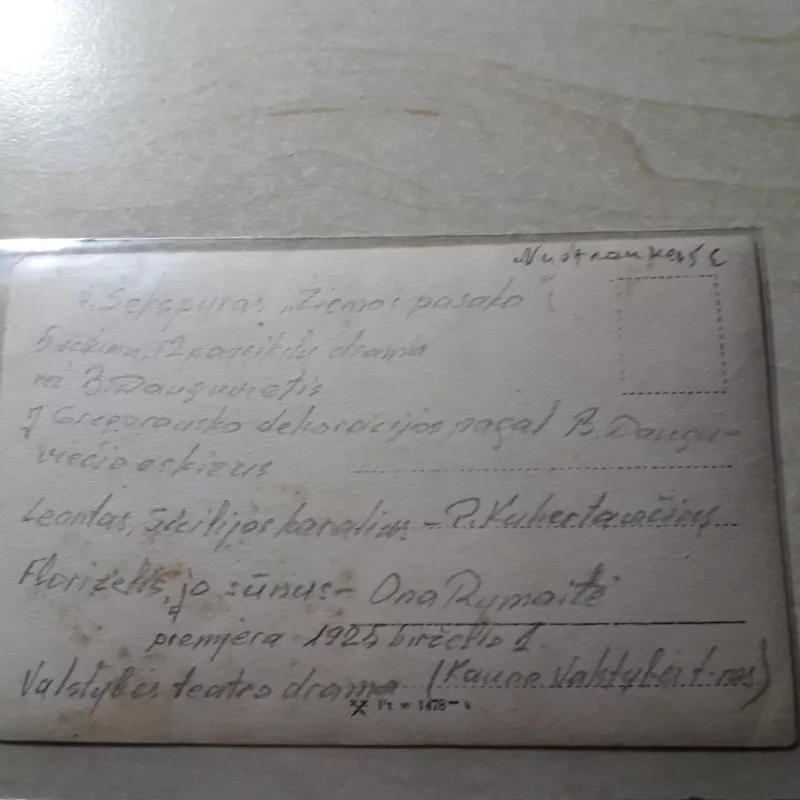 V. Šekspyras „Žiemos pasaka“
5 veiksmų, 12 paveikslų drama
rež. B. Dauguvietis
J Grigorausko dekoracijos pagal B. Daugu-
viečio eskizus
Leontas, Sicilijos karalius – P. Kubertavičius
Florizelis, jo sūnus – Ona Rymaitė
premjera 1925 birželio 1.
Valstybės teatro drama (Kauno Valstybės t-ras)